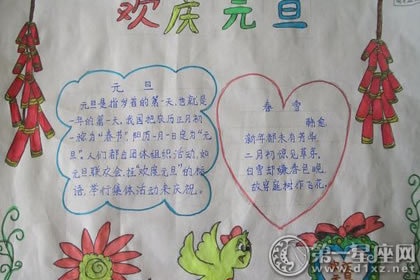 欢庆元旦
元 旦
元旦是指岁首的第一天,也就是
一年的第一天,我国把农历正月初
一称为“春节”阳历一月一日定为“元
旦”。人们都以团体组织活动,如
元旦联欢会,挂“欢度元旦”的标
语,举行集体活动来庆祝。
春 雪
韩愈
新年都未有芳华,
二月初惊见草芽。
白雪却嫌春色晚,
故穿庭树作飞花。
第一星座网
www.d1xz.net